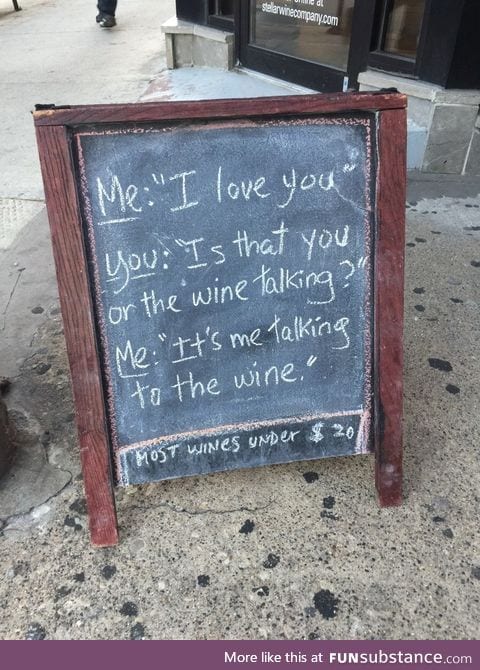 online at
stellarwinecompany.com
Me: "I love you"
you: "Is that you
or the wine talking?"
Me: "It's me talking
to the wine."
MOST WINES UNDER $20
More like this at FUNsubstance.com